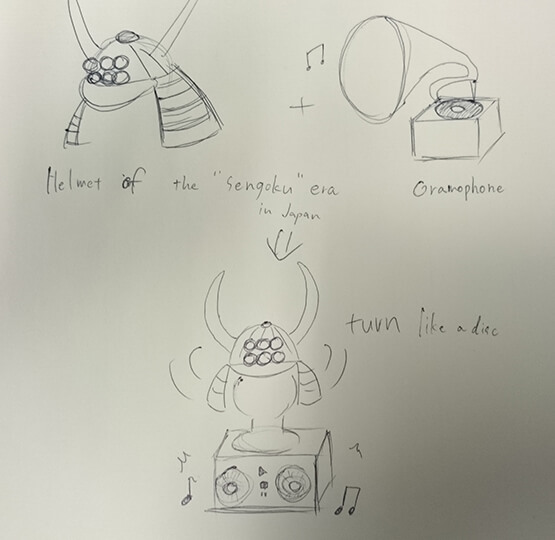 Helmet of the "Sengoku" era
in Japan
Gramophone
turn like a disc